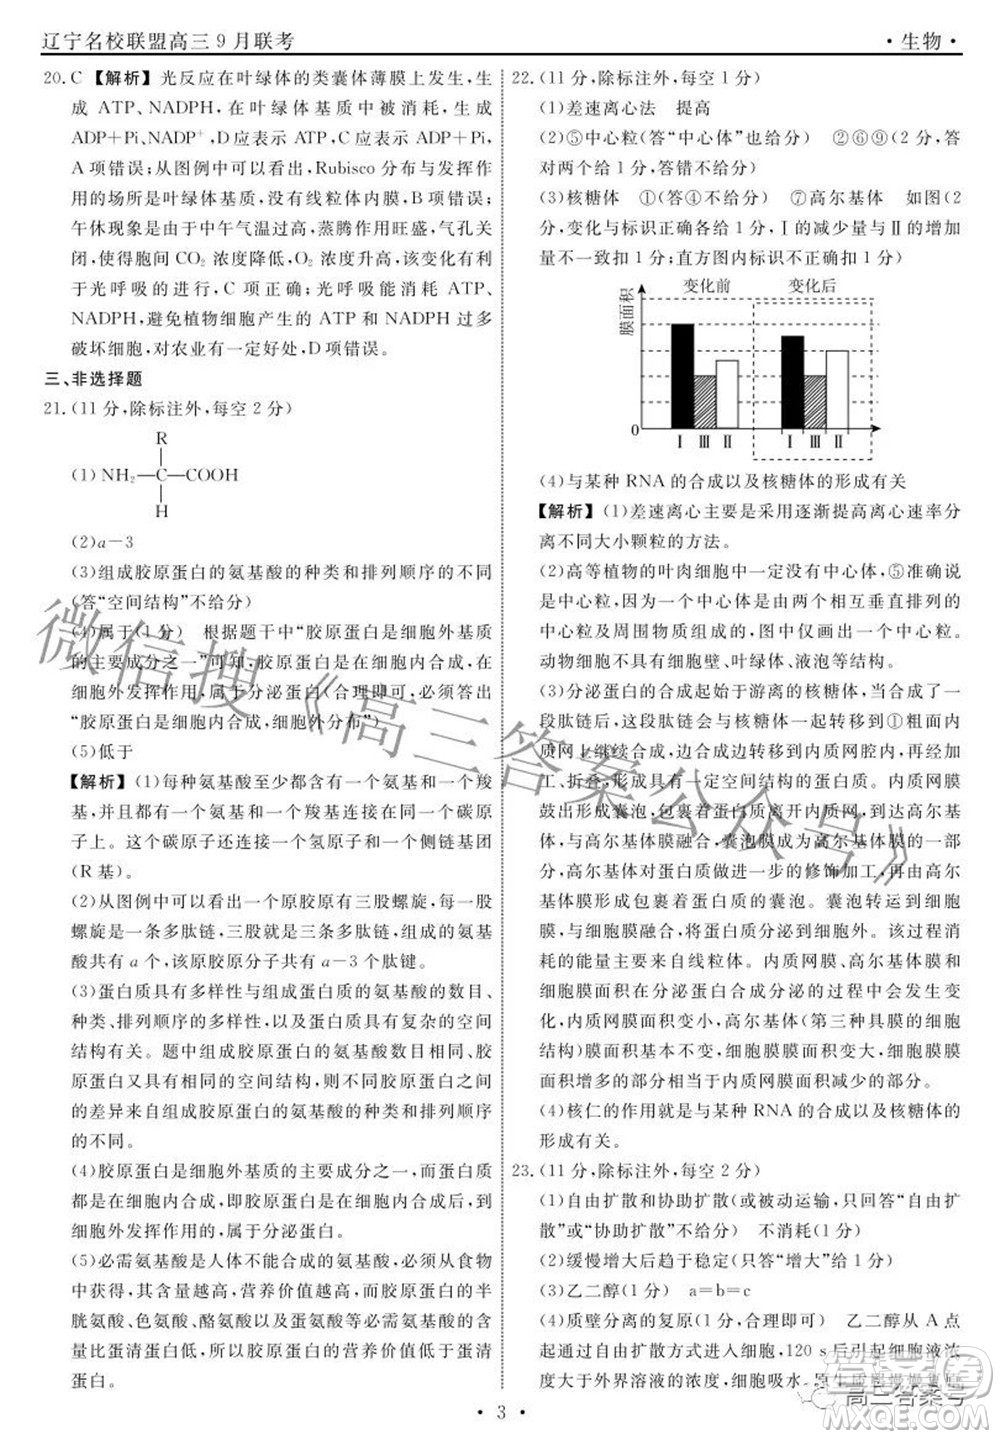 辽宁名校联盟高三9月联考
·生物·
20.C 【解析】光反应在叶绿体的类囊体薄膜上发生,生
成 ATP、NADPH,在叶绿体基质中被消耗,生成
ADP+Pi、NADP⁺,D应表示 ATP,C应表示 ADP+Pi,
A项错误;从图例中可以看出,Rubisco 分布与发挥作
用的场所是叶绿体基质,没有线粒体内膜,B项错误;
午休现象是由于中午气温过高,蒸腾作用旺盛,气孔关
闭,使得胞间 CO₂ 浓度降低,O₂ 浓度升高,该变化有利
于光呼吸的进行,C 项正确;光呼吸能消耗 ATP、
NADPH,避免植物细胞产生的 ATP 和 NADPH 过多
破坏细胞,对农业有一定好处,D项错误。
三、非选择题
21.(11 分,除标注外,每空 2 分)
R
(1)NH₂—C—COOH
H
(2)a-3
(3)组成胶原蛋白的氨基酸的种类和排列顺序的不同
(答“空间结构”不给分)
(4)属于(1 分) 根据题干中“胶原蛋白是细胞外基质
的主要成分之一”可知,胶原蛋白在细胞内合成,在细
胞外发挥作用,属于分泌蛋白(合理即可,必须答出
“胶原蛋白是细胞内合成,细胞外分布”)
(5)低于
【解析】(1)每种氨基酸至少都含有一个氨基和一个羧
基,并且都有一个氨基和一个羧基连接在同一个碳原
子上。这个碳原子还连接一个氢原子和一个侧链基团
(R 基)。
(2)从图例中可以看出一个原胶原蛋白是三股螺旋,一
股螺旋是一条多肽链,三股就是三条多肽链,组成的氨基
酸共有 a 个,该原胶原分子共有 a-3 个肽键。
(3)蛋白质的多样性与组成蛋白质的氨基酸的数目、
种类、排列顺序的多样性,以及蛋白质具有复杂的空间
结构有关。题中组成胶原蛋白的氨基酸数目相同,胶
原蛋白又具有相同的空间结构,则不同动物胶原蛋白
的差异来自组成胶原蛋白的氨基酸的种类和排列顺序
的不同。
(4)胶原蛋白是细胞外基质的主要成分之一,而蛋白质
都在细胞内合成,即胶原蛋白在细胞内合成后,到细胞
外发挥作用,属于分泌蛋白。
(5)必需氨基酸是人体不能合成的氨基酸,必须从食物
中获得,其含量越高,营养价值越高。人体必需的半
胱氨酸、色氨酸、酪氨酸以及蛋氨酸等含量均比清蛋
白低,所以胶原蛋白的营养价值低于营养价值高的清
蛋白。
22.(11 分,除标注外,每空 1 分)
(1)差速离心法 提高
(2)⑤中心粒(答“中心体”也给分) ②⑥⑨(2 分,答
对两个给 1 分,答错不给分)
(3)核糖体 ①(答④不给分) ⑦高尔基体 如图(2
分,变化与标识正确各给 1 分,Ⅰ的减少量与Ⅱ的增加
量不一致扣 1 分;直方图内标识不正确扣 1 分)
膜面积
变化前 变化后
0
Ⅰ Ⅲ Ⅱ Ⅰ Ⅲ Ⅱ
(4)与某种 RNA 的合成以及核糖体的形成有关
【解析】(1)差速离心主要是采用逐渐提高离心速率分
离不同大小颗粒的方法。
(2)高等植物的叶肉细胞中一定没有中心体,⑤准确说
是中心粒,在细胞分裂中心体由两个互相垂直排列的
中心粒及周围物质组成的,图中仅画出一个中心粒。
动物细胞不具有细胞壁、叶绿体、液泡等结构。
(3)分泌蛋白的合成起始于游离的核糖体,合成了一
段肽链后,这段肽链会与核糖体一起转移到①粗面内
质网上继续合成,边合成边转移到内质网腔内,经过加
工、折叠,形成具有一定空间结构的蛋白质。内质网膜
鼓出形成囊泡,包裹着蛋白质离开内质网,到达高尔基
体,与高尔基体膜融合,囊泡膜成为高尔基体膜的一部
分,高尔基体对蛋白质做进一步的修饰加工,再由高尔
基体膜形成包裹着蛋白质的囊泡。囊泡转运到细胞
膜,与细胞膜融合,将蛋白质分泌到细胞外。这过程消
耗的能量主要来自线粒体。内质网膜、高尔基体膜和
细胞膜在分泌蛋白合成分泌的过程中会发生变
化,内质网膜面积减小,高尔基体(第三种具膜的细胞
结构)膜面积基本不变,细胞膜面积变大,细胞膜面积
增多部分基本等于内质网膜面积减少部分。
(4)核仁的作用就是与某种 RNA 的合成以及核糖体的
形成有关。
23.(11 分,除标注外,每空 2 分)
(1)自由扩散和协助扩散(或被动运输,只回答“自由扩
散”或“协助扩散”不给分) 不消耗(1 分)
(2)缓慢增大后趋于稳定(只答“增大”给 1 分)
(3)乙二醇(1 分) a=b=c
(4)质壁分离的复原(1分,合理即可) 乙二醇从 A 点
起以自由扩散方式进入细胞,120 s 后引起细胞液浓
度大于外界溶液的浓度,细胞吸水,原生质层慢慢恢复
· 3 ·
微信搜《高三答案公众号》
高三答案号
答案圈
MXQE.COM